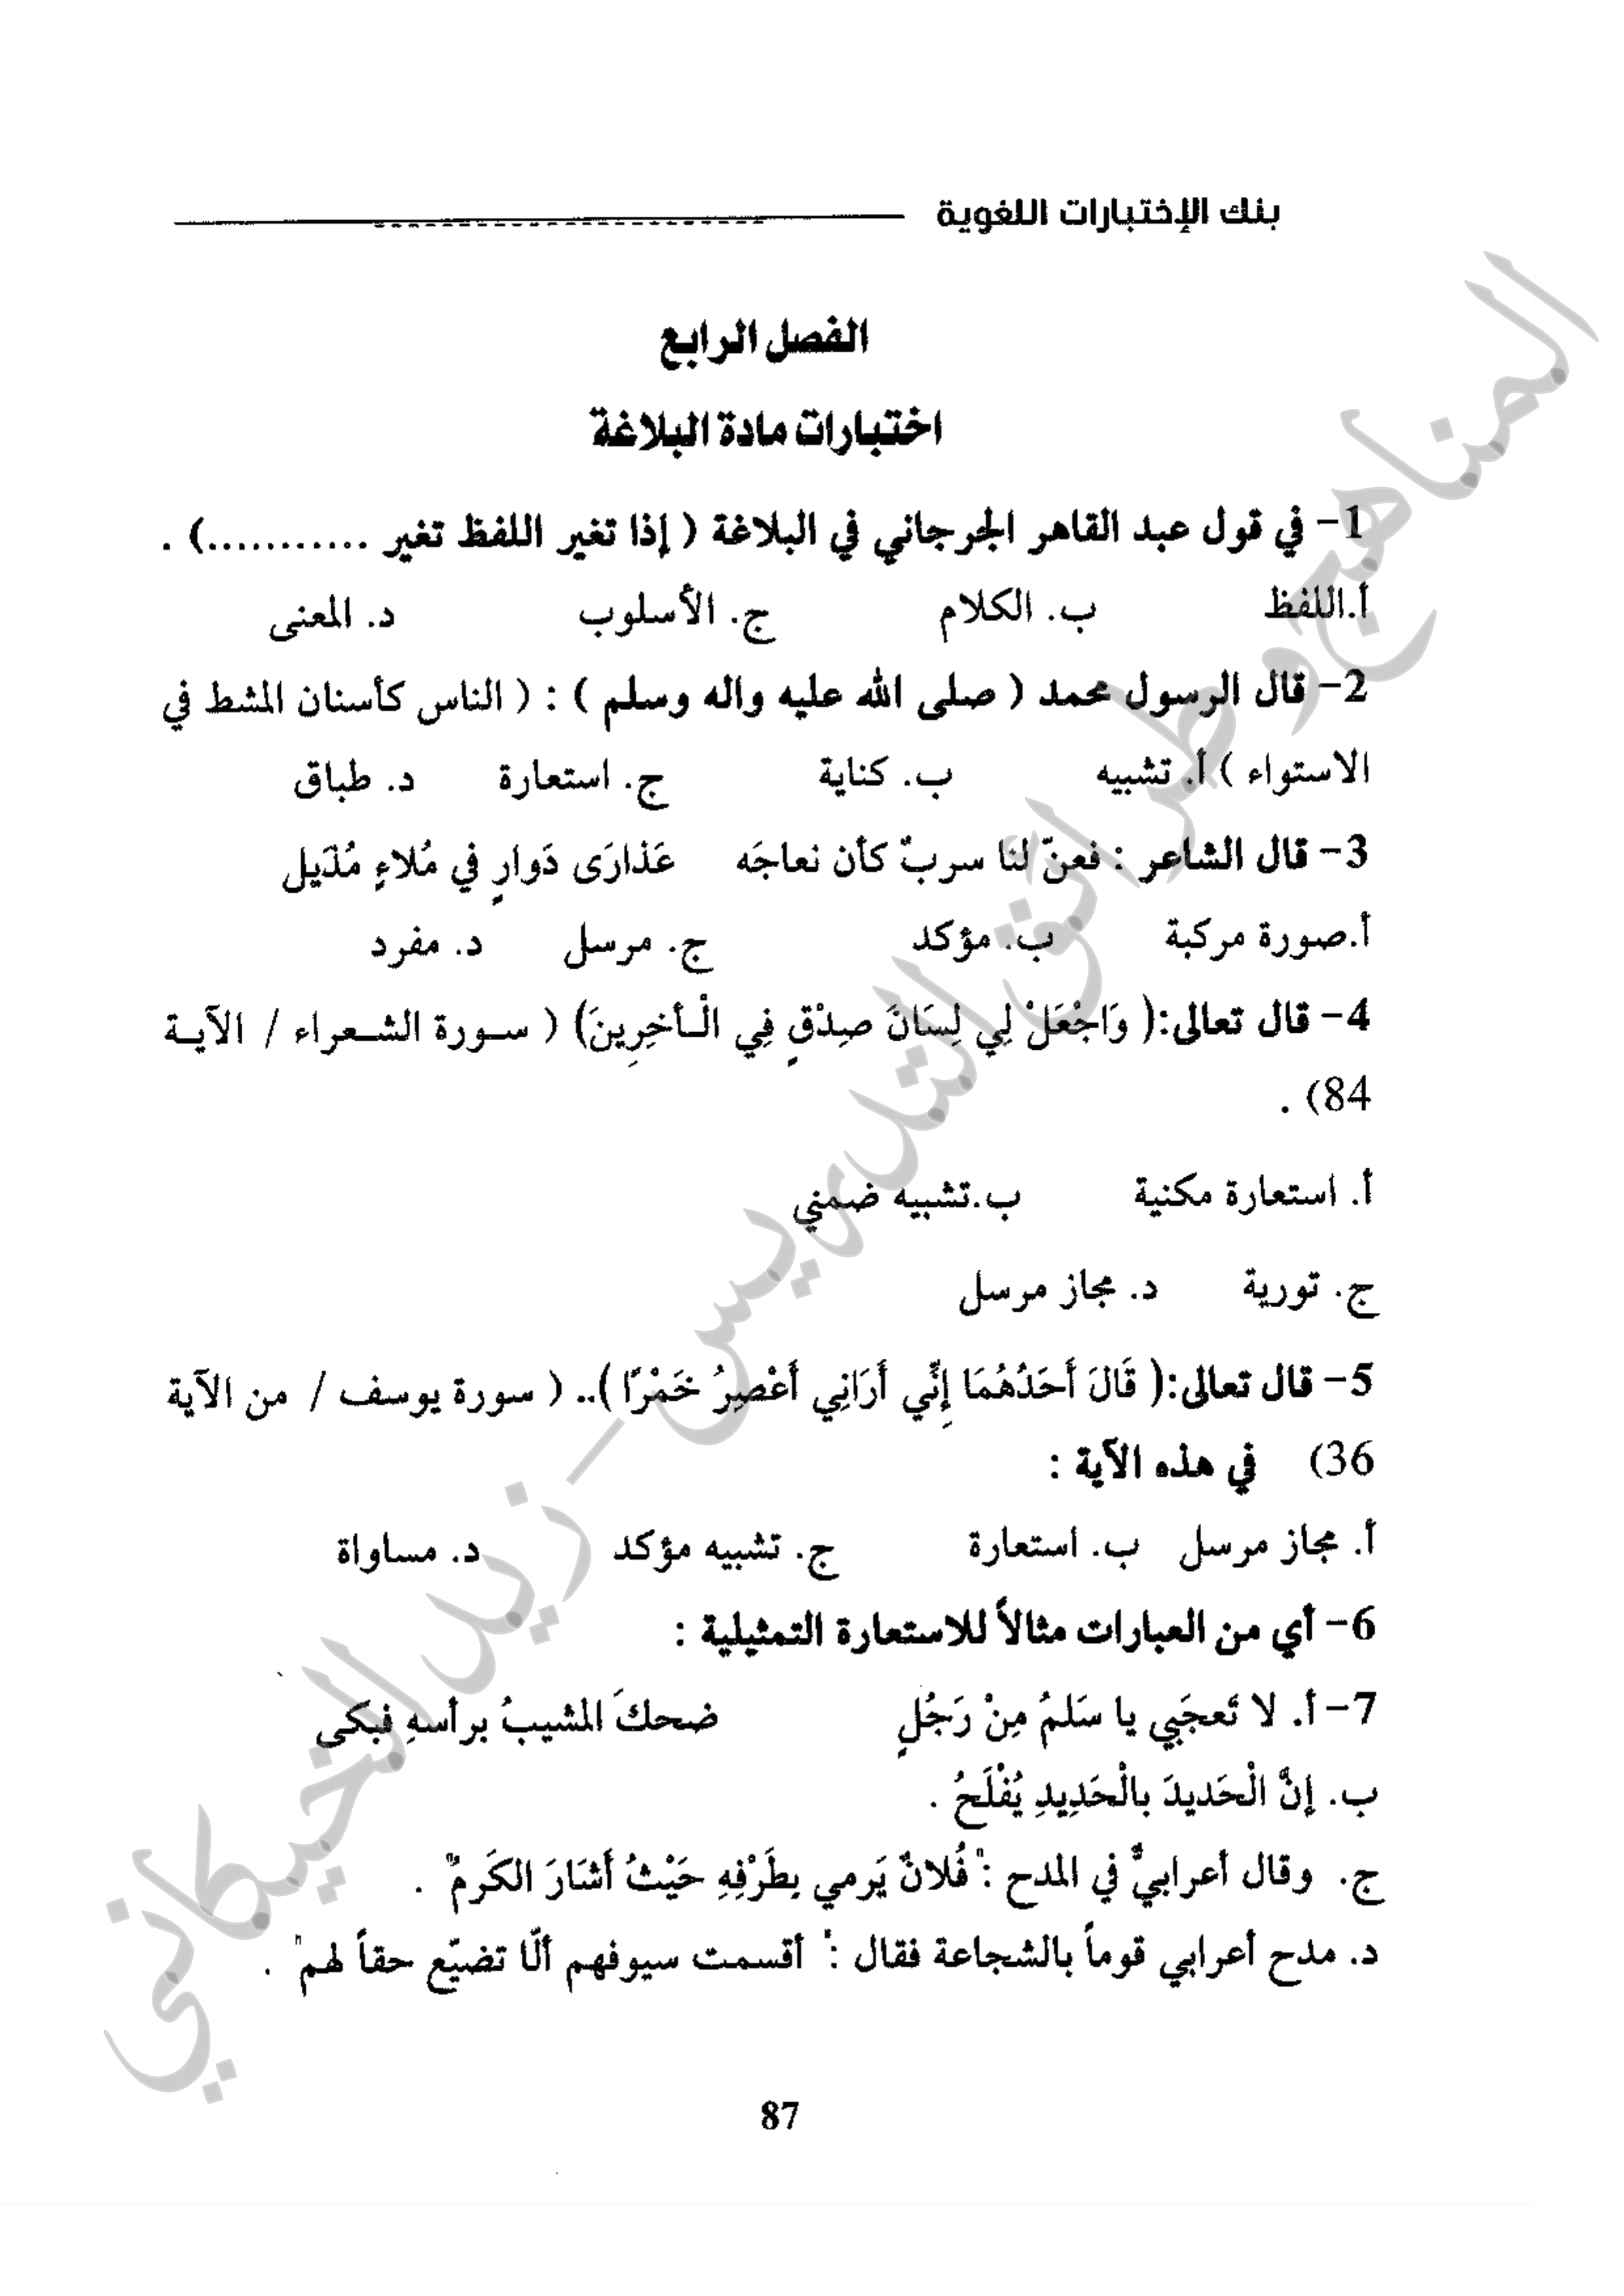 بنك الإختبارات اللغوية
الفصل الرابع
اختبارات مادة البلاغة
1- في قول عبد القاهر الجرجاني في البلاغة ( إذا تغير اللفظ تغير ...........) .
أ.اللفظ ب. الكلام ج. الأسلوب د. المعنى
2- قال الرسول محمد ( صلى الله عليه واله وسلم ) : ( الناس كأسنان المشط في
الاستواء ) أ. تشبيه ب. كناية ج. استعارة د. طباق
3- قال الشاعر : فعنّ لنا سربٌ كأن نعاجَه عَذارَى دَوارٍ في مُلاءٍ مُذَيل
أ.صورة مركبة ب. مؤكد ج. مرسل د. مفرد
4- قال تعالى:( وَاجْعَلْ لِي لِسَانَ صِدْقٍ فِي الْـأخِرِينَ) ( سـورة الشـعراء / الآيـة
84) .
أ. استعارة مكنية ب.تشبيه ضمني
ج. تورية د. مجاز مرسل
5- قال تعالى:( قَالَ أَحَدُهُمَا إِنِّي أَرَانِي أَعْصِرُ خَمْرًا ).. ( سورة يوسف / من الآية
36) في هذه الآية :
أ. مجاز مرسل ب. استعارة ج. تشبيه مؤكد د. مساواة
6- أي من العبارات مثالاً للاستعارة التمثيلية :
7- أ. لا تَعجَبي يا سَلمُ مِنْ رَجُلٍ ضحكَ المشيبُ برأسهِ فبكى
ب. إنَّ الْحَديدَ بالْحَدِيدِ يُفْلَحُ .
ج. وقال أعرابيٌّ في المدح :" فُلانٌ يَرمي بِطَرْفِهِ حَيْثُ أَشَارَ الكَرمُ" .
د. مدح أعرابي قوماً بالشجاعة فقال :" أقسمت سيوفهم ألّا تضيّع حقاً لهم" .
87
المناهج وطرائق التدريس - زيد الخيكاني